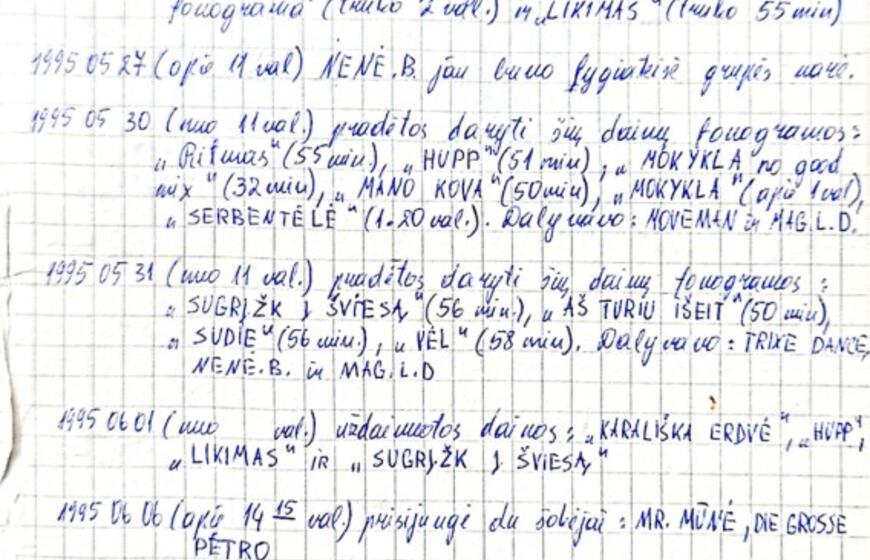 fonograma (truko 2 val.) ir „LIKIMAS" (truko 55 min)
1995 05 27 (apie 11 val) NENĖ.B. jau buvo lygiateisė grupės narė.
1995 05 30 (nuo 11 val.) pradėtos daryti šių dainų fonogramos:
„Ritmas" (55 min), „HUPP" (51 min), „MOKYKLA no good
mix" (32 min), „MANO KOVA" (50 min), „MOKYKLA" (apie 1 val),
„SERBENTĖLĖ" (1.20 val.). Dalyvavo: MOVEMAN ir MAG.L.D.
1995 05 31 (nuo 11 val.) pradėtos daryti šių dainų fonogramos:
„SUGRĮŽK Į ŠVIESĄ" (56 min.), „AŠ TURIU IŠEIT" (50 min),
„SUDIE" (56 min.), „VĖL" (58 min). Dalyvavo: TRIXE DANCE,
NENĖ.B. ir MAG.L.D
1995 06 01 (nuo val.) uždainuotos dainos: „KARALIŠKA ERDVĖ", „HUPP",
„LIKIMAS" IR „SUGRĮŽK Į ŠVIESĄ"
1995 06 06 (apie 14 15 val.) prisijungė du šokėjai: MR. MŪNĖ, DIE GROSSE
PĖTRO